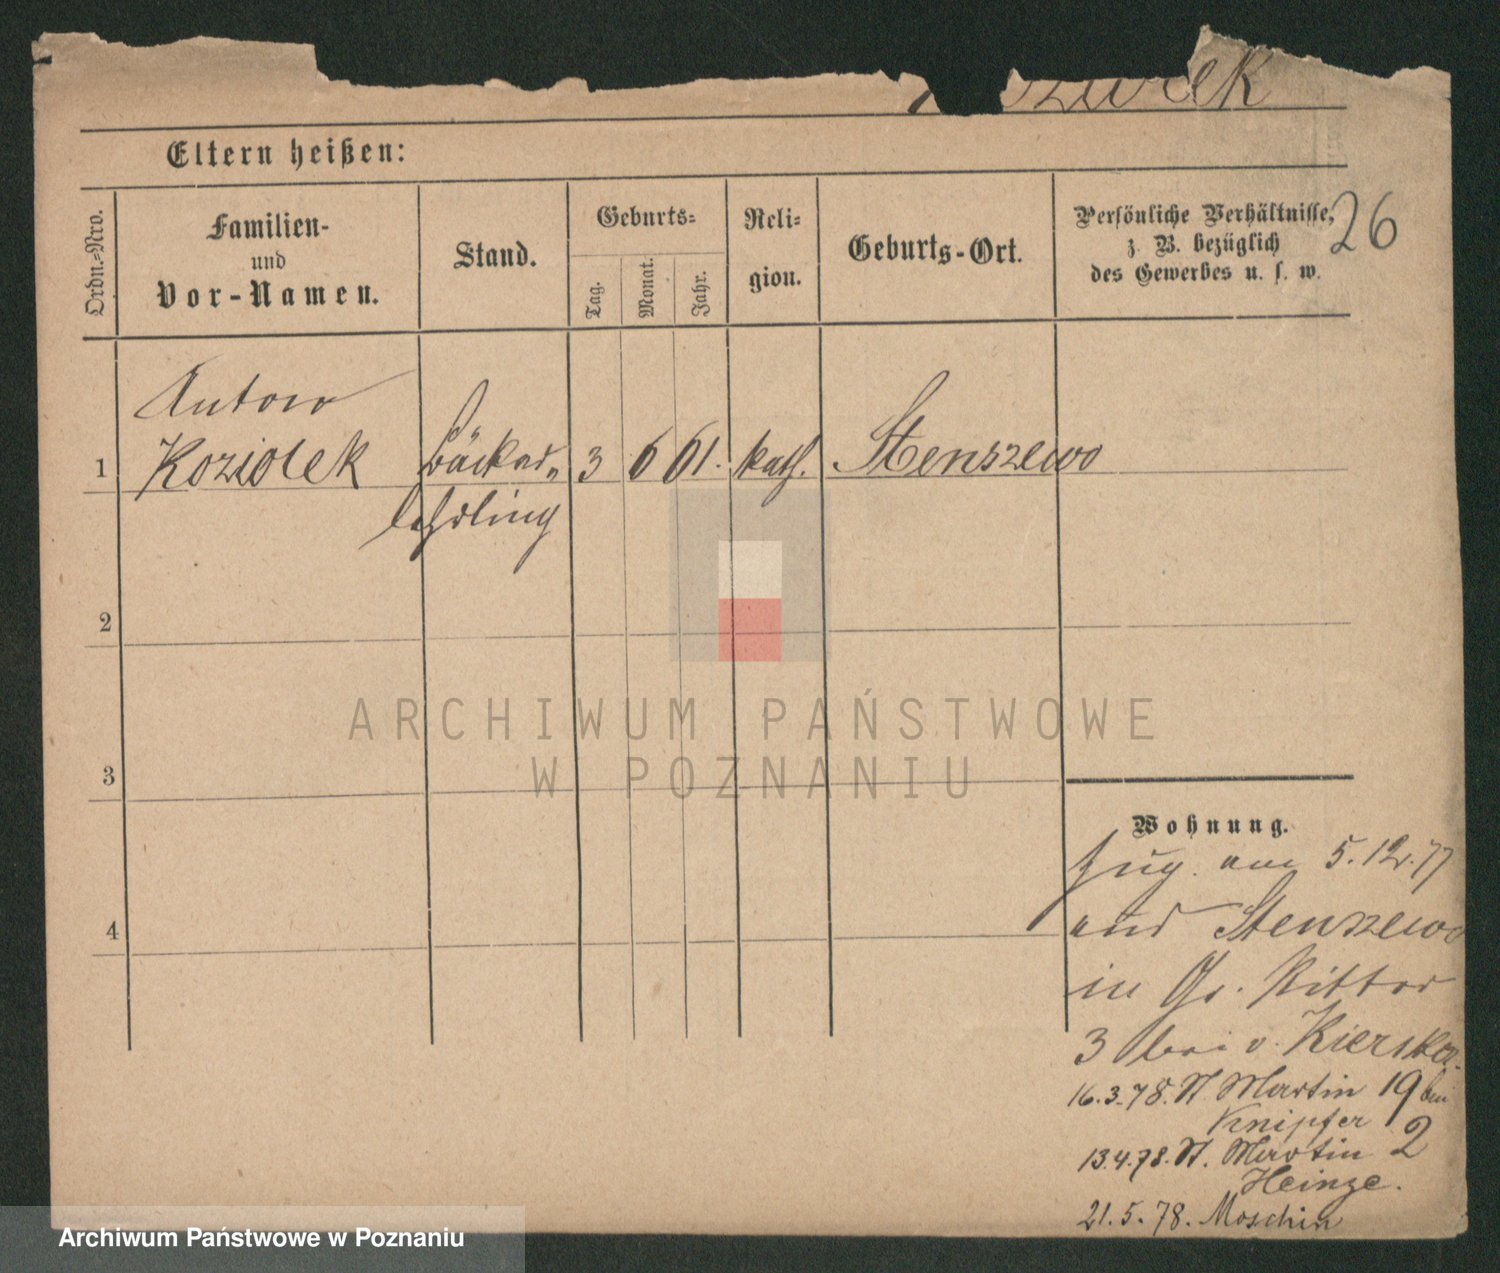 Eltern heißen:
Ordn.=Nro.
Familien-
und
Vor-Namen.
Stand.
Geburts=
Tag.
Monat.
Jahr.
Reli=
gion.
Geburts-Ort.
Persönliche Verhältnisse,
z. B. bezüglich
des Gewerbes u. s. w.
26
Anton
1 Koziolek Bäcker„ 3 6 61. kath. Stenszewo
lehrling
2
3
4
Wohnung.
Zug. am 5.12.77
aus Stenszewo
in Gr. Ritter
3 bei v. Kierska.
16.3.78. St. Martin 19 bei
Knipfer
13.4.78. St. Martin 2
Heinze.
21.5.78. Moschin
ARCHIWUM PAŃSTWOWE
W POZNANIU
Archiwum Państwowe w Poznaniu